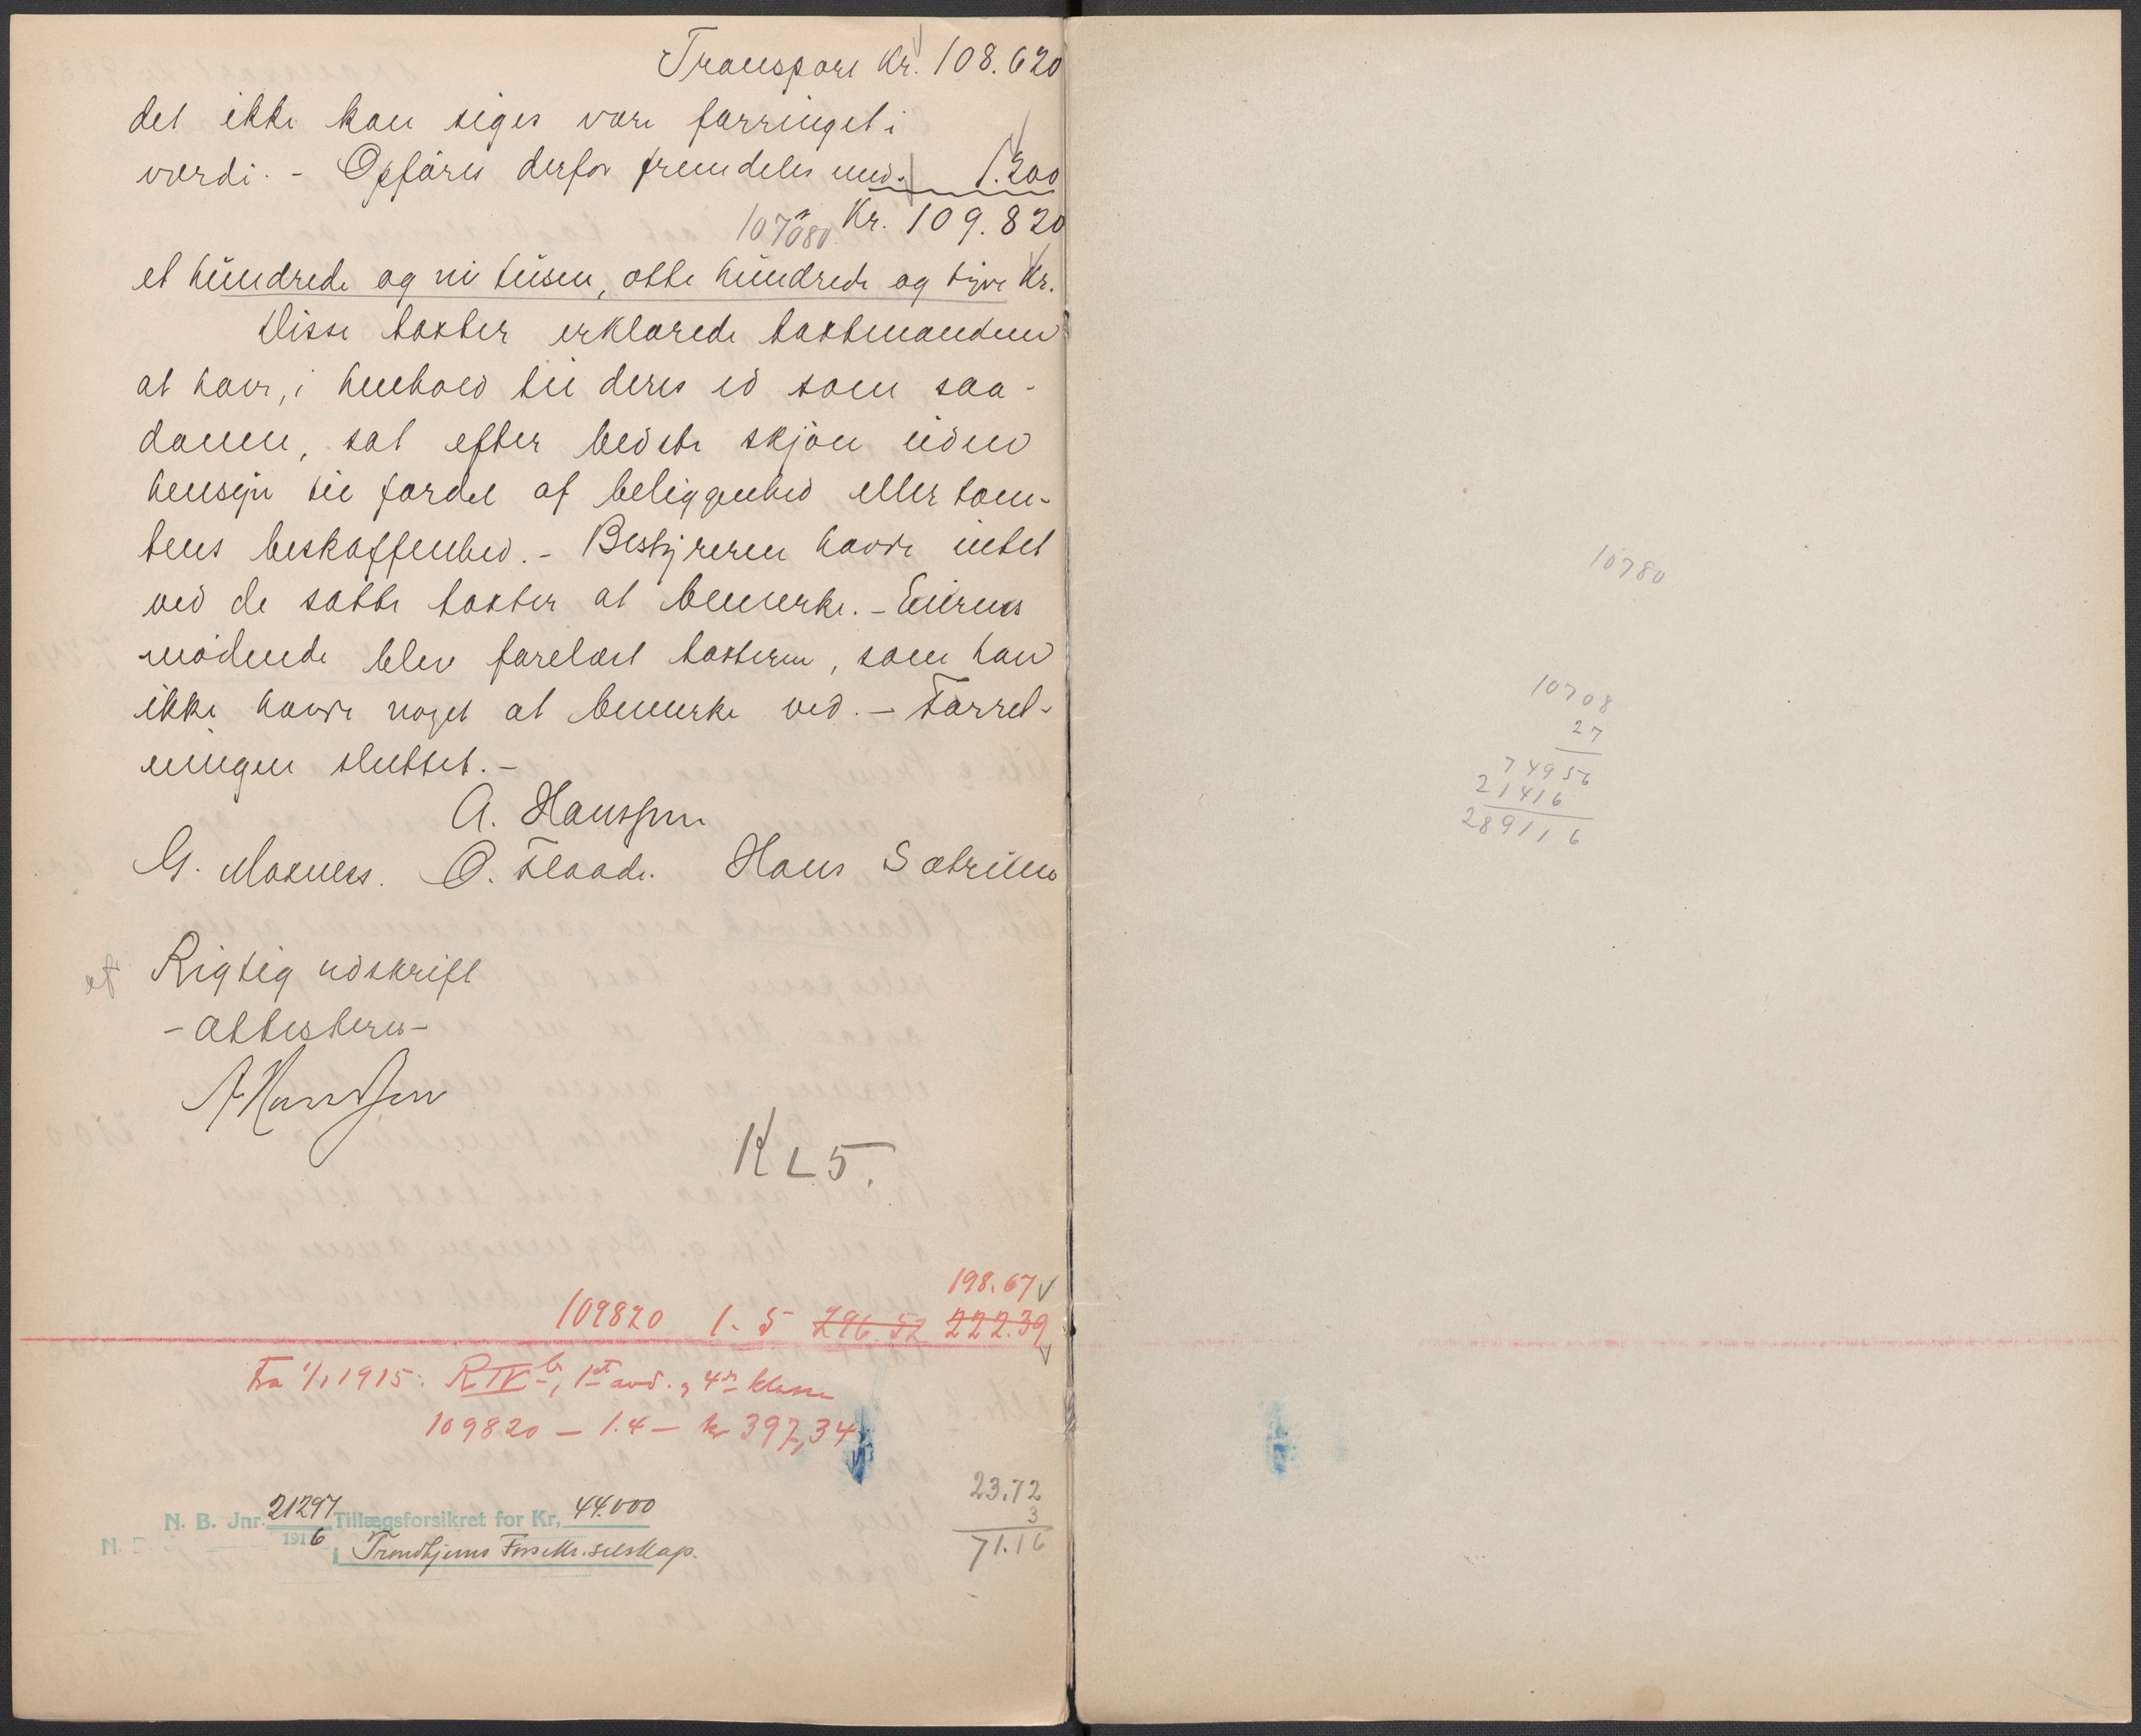 Transport Kr. 108.620
det ikke kan siges være forringet i
værdi. - Opføres derfor fremdeles med. 1.200
Kr. 109.820
107080
et hundrede og ni tusen, otte hundrede og tyve Kr.
Disse taxter erklærede taxtmændene
at have, i henhold til deres ed som saa-
danne, sat efter bedste skjøn uden
hensyn til fordel af beliggenhed eller tom-
tens beskaffenhed. - Bestyreren havde intet
ved de satte taxter at bemerke. - Eierens
mødende blev forelæst taxterne, som han
ikke havde noget at bemerke ved. - Forret-
ningen sluttet. -
A. Hanssen
G. Moxness. O. Flaade. Hans Sætrum
Rigtig udskrift
- attesteres -
A Hanssen
K L 5.
198.67
109820 1. 5 296.52 222.39
Fra 1/1 1915: R IV b, 1ste avd., 4de klasse
109820 - 1.4 - kr 397,34
23.72
3
71.16
N. B. Jnr. 21297 Tillægsforsikret for Kr. 44.000
1916 i Trondhjems Forsikr.selskap.
10780
10708
27
74956
21416
289116